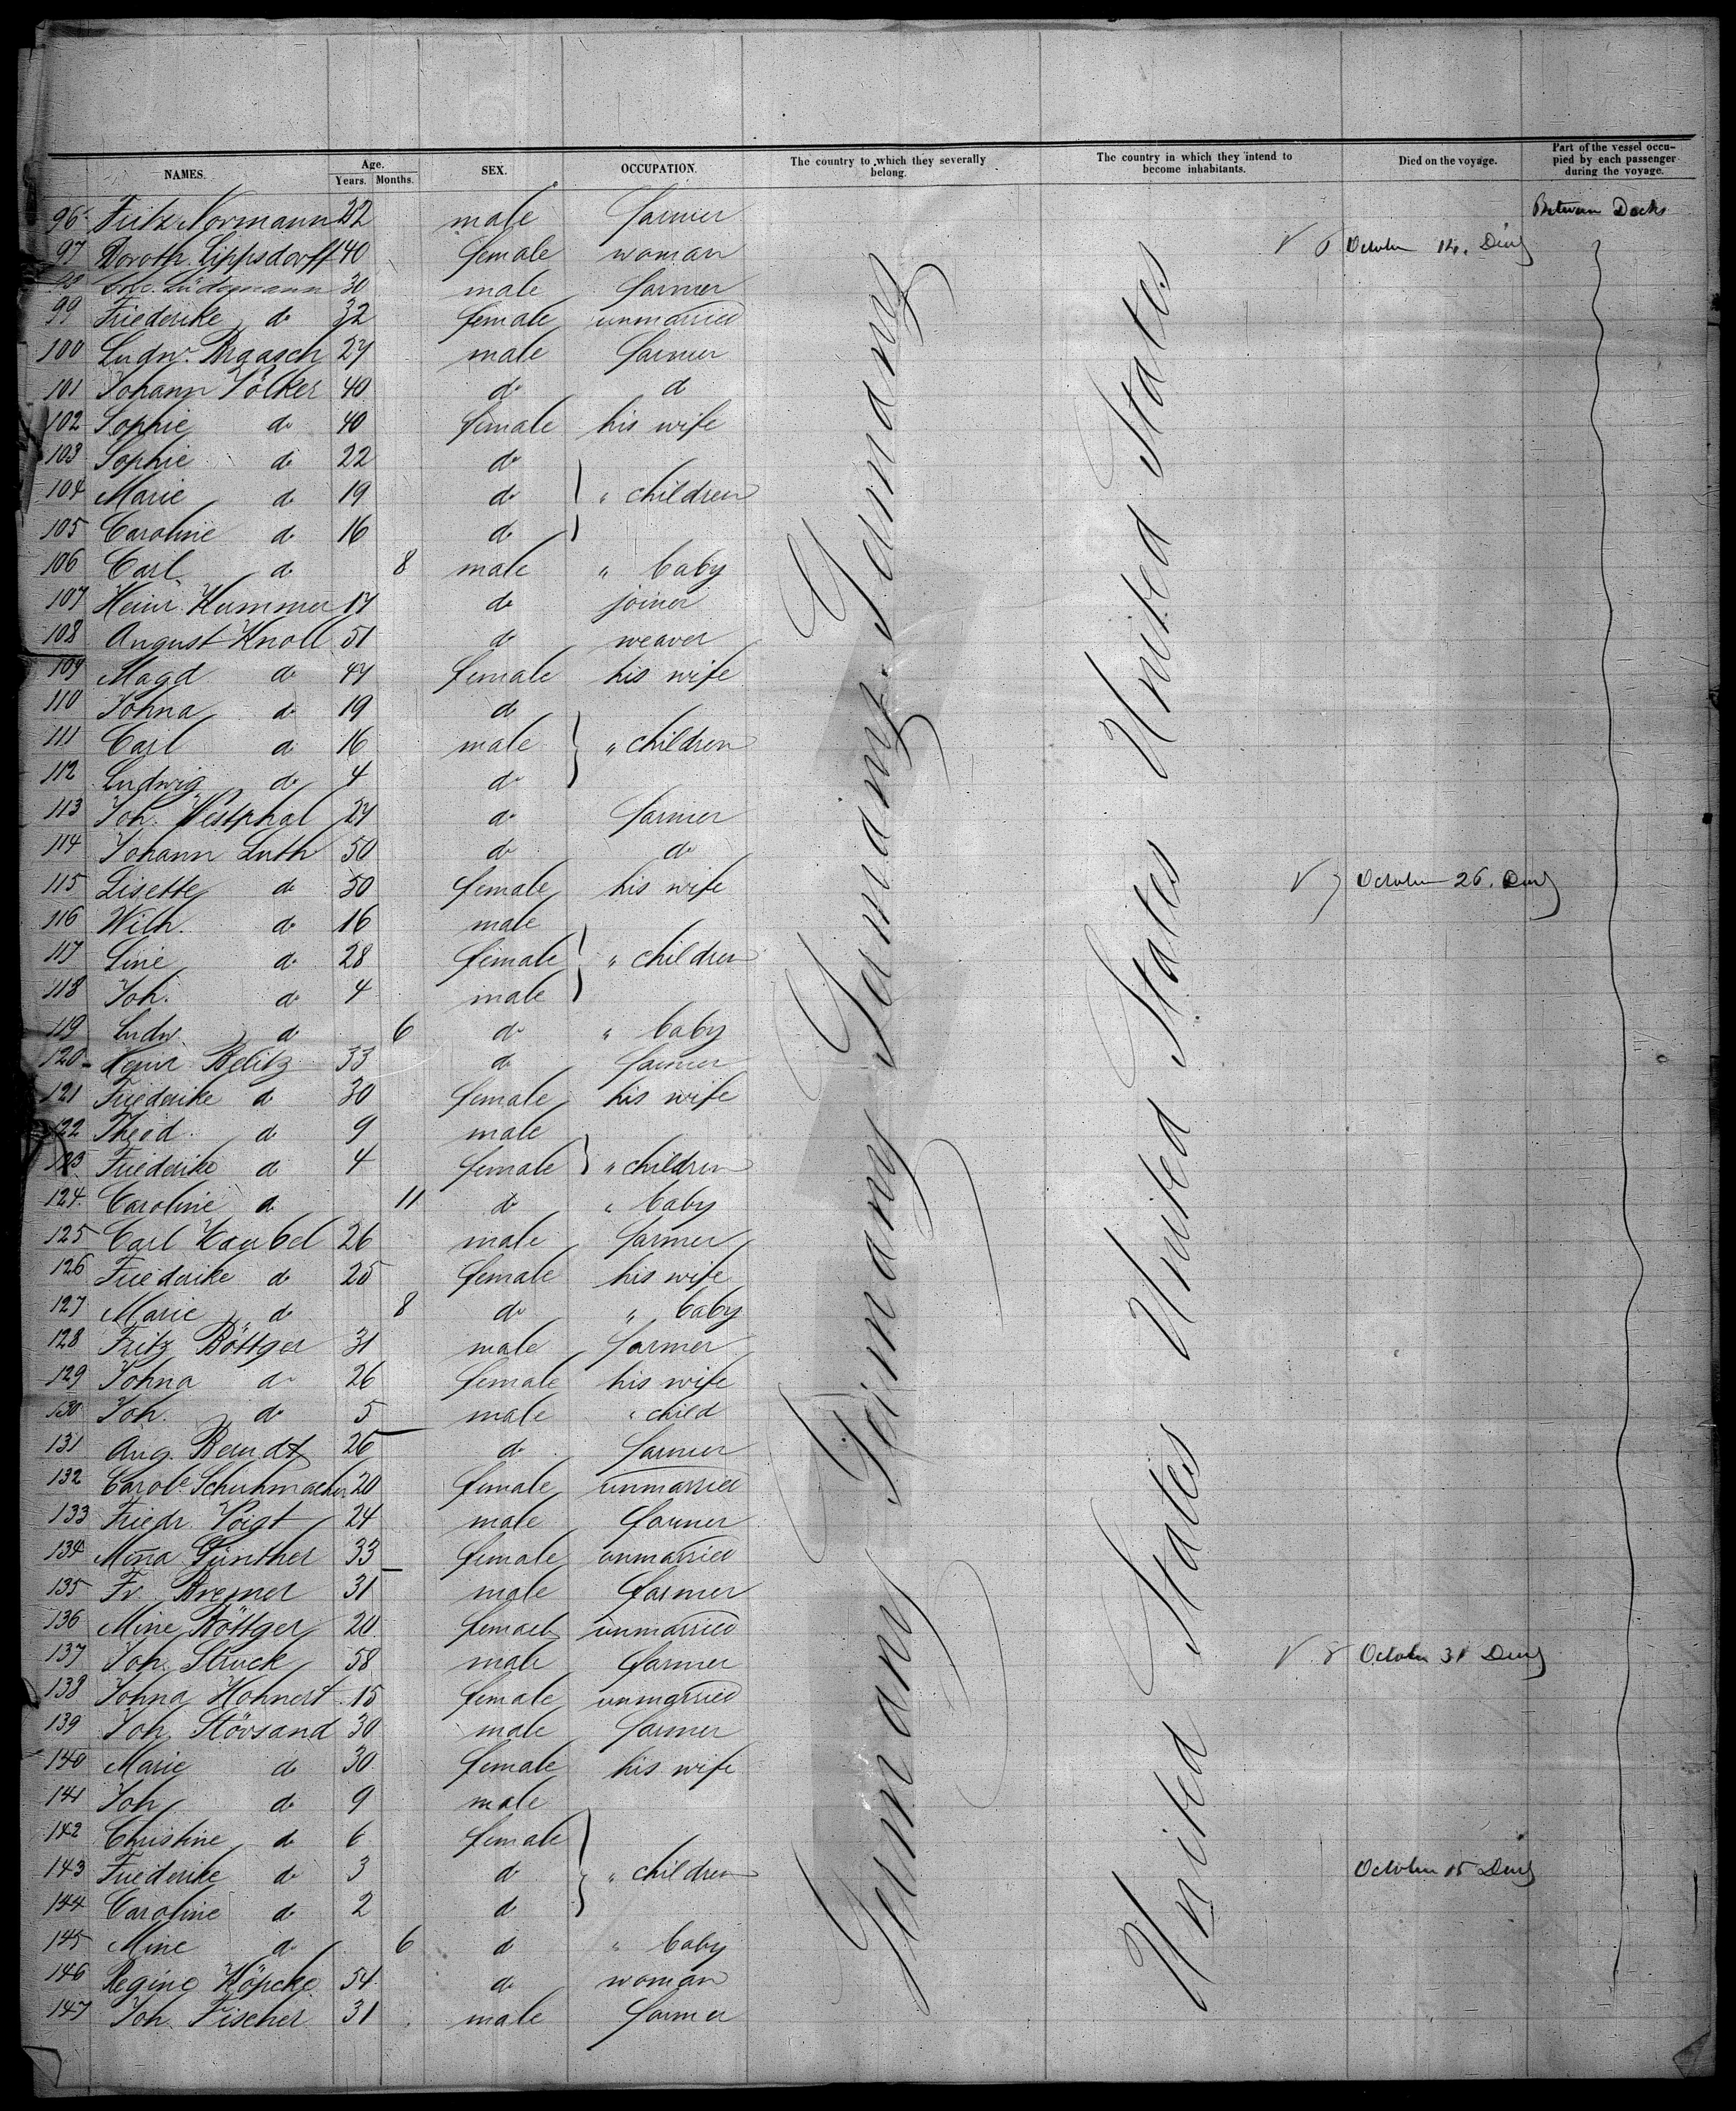 NAMES. Age. Years. Months. SEX. OCCUPATION. The country to which they severally belong. The country in which they intend to become inhabitants. Died on the voyage. Part of the vessel occupied by each passenger during the voyage.
96 Fritz Normann 22 male farmer Between Decks
97 Doroth. Lippsdorff 40 female woman October 14. Died
98 Lüdemann 30 male farmer
99 Friederike do 32 female unmarried
100 Ludw. Braasch 27 male farmer
101 Johann Völker 40 do do
102 Sophie do 40 female his wife
103 Sophie do 22 do
104 Marie do 19 do " children
105 Caroline do 16 do
106 Carl do 8 male " baby
107 Heinr. Kummer 17 do joiner
108 August Knoll 51 do weaver
109 Magd do 47 female his wife
110 Johna do 19 do
111 Carl do 16 male " children
112 Ludwig do 4 do
113 Joh. Westphal 27 do farmer
114 Johann Luth 50 do do
115 Lisette do 50 female his wife October 26. Died
116 Wilh. do 16 male
117 Line do 28 female " children
118 Joh. do 4 male
119 Ludw. do 6 do " baby
120 Heinr Belitz 33 do farmer
121 Friederike do 30 female his wife
122 Theod. do 9 male
123 Friederike do 4 female " children
124. Caroline do 11 do " baby
125 Carl 26 male farmer
126 Friederike do 25 female his wife
127 Marie do 8 do " baby
128 Fritz Böttger 31 male farmer
129 Johna do 26 female his wife
130 Joh. do 5 male " child
131 Aug. Berndt 26 do farmer
132 Carol. Schuhmacher 20 female unmarried
133 Friedr. Voigt 24 male farmer
134 Mina Günther 33 female unmarried
135 Fr. Bremer 31 male farmer
136 Mine Böttger 20 female unmarried
137 Joh. Struck 58 male farmer 8 October 31 Died
138 Johna Hohnert 15 female unmarried
139 Joh. Stövsand 30 male farmer
140 Marie do 30 female his wife
141 Joh do 9 male
142 Christine do 6 female
143 Friederike do 3 do " children October 15 Died
144 Caroline do 2 do
145 Mine do 6 do " baby
146 Regine Köpcke 54 do woman
147 Joh. Fischer 31 male farmer
Germany Germany Germany Germany Germany
United States United States United States